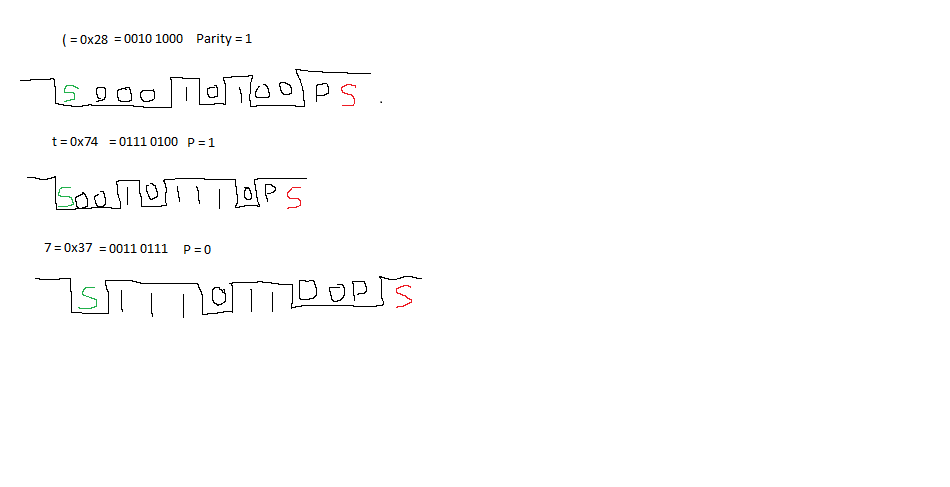 ( = 0x28 = 0010 1000 Parity = 1
S 0 0 0 1 0 1 0 0 P S .
t = 0x74 = 0111 0100 P = 1
S 0 0 1 0 1 1 1 0 P S
7 = 0x37 = 0011 0111 P = 0
S 1 1 1 0 1 1 0 0 P S